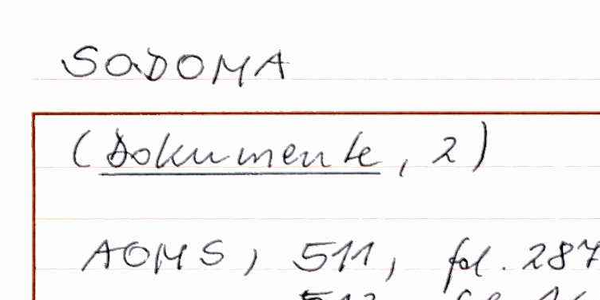 SODOMA
(Dokumente, 2)
AOMS, 511, fol. 287